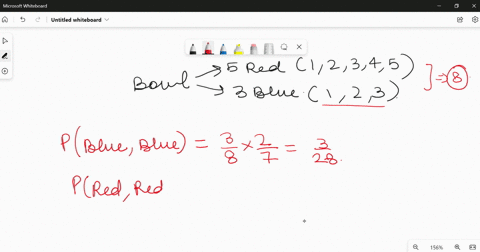 Microsoft Whiteboard
Untitled whiteboard
Bowl 5 Red (1, 2, 3, 4, 5)
3 Blue (1, 2, 3) ⇒ 8
P(Blue, Blue) = 3/8 × 2/7 = 3/28.
P(Red, Red
156%